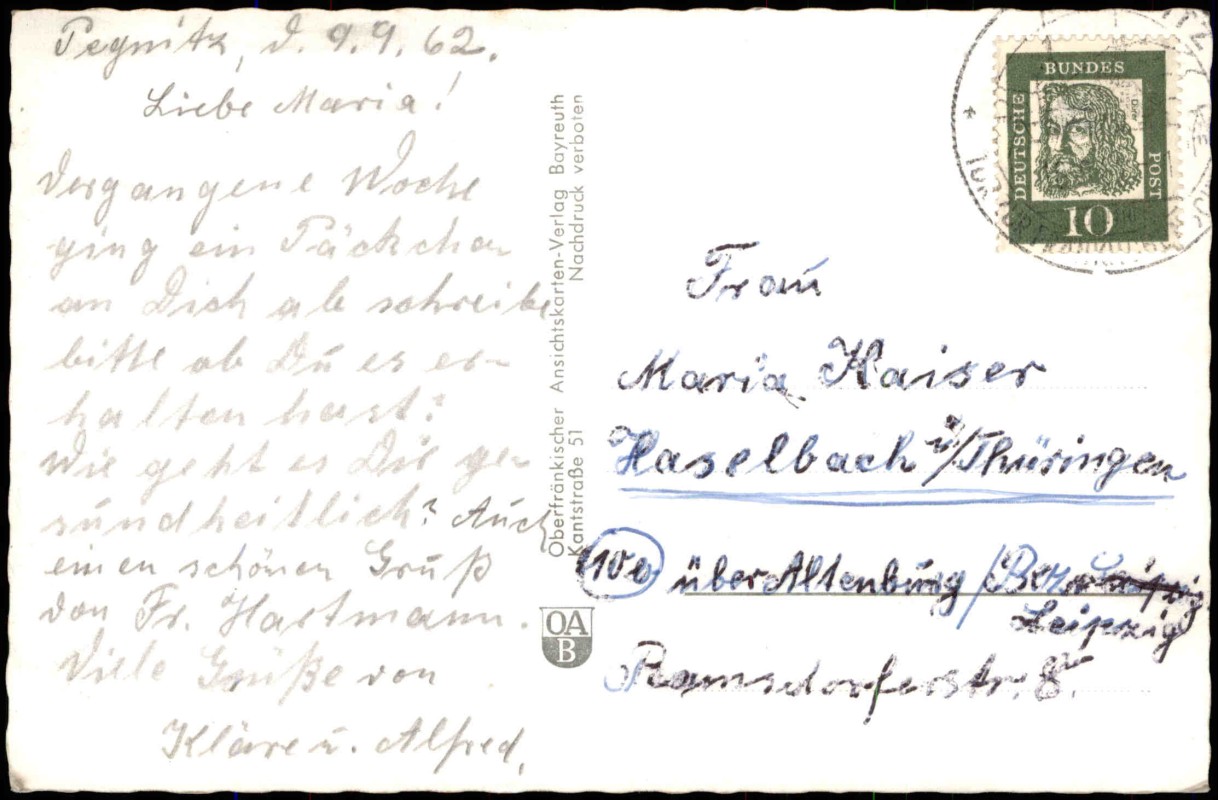 Pegnitz, d. 9.9.62.
Liebe Maria!
Vergangene Woche
ging ein Päckchen
an Dich ab schreibe
bitte ob Du es er-
halten hast?
Wie geht es Dir ge-
sundheitlich? Auch
einen schönen Gruß
von Fr. Hartmann.
Viele Grüße von
Kläre u. Alfred.
Oberfränkischer Ansichtskarten-Verlag Bayreuth
Kantstraße 51 Nachdruck verboten
OA
B
DEUTSCHE
BUNDES
POST
Dürer
10
Frau
Maria Kaiser
Haselbach i/Thüringen
(10b) über Altenburg / Bez.
Leipzig
Ramsdorferstr. 8.